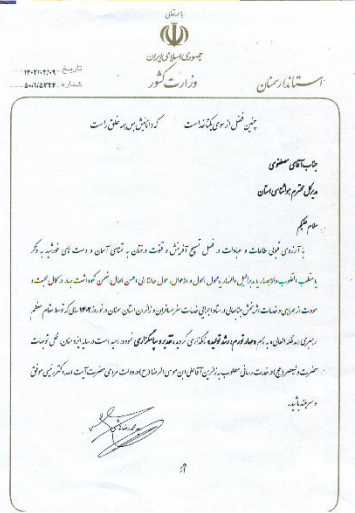 باسمه تعالی
جمهوری اسلامی ایران
وزارت کشور
استانداری سمنان
تاریخ ۱۴۰۲/۰۲/۰۹
شماره ۵۰/۱/۵۲۴۴
چنین فضل از سوی یکتا خداست که دانایی‌اش بس همه خلق راست
جناب آقای مصطفوی
مدیرکل محترم هواشناسی استان
سلام علیکم
با آرزوی قبولی طاعات و عبادات در فصل تسبیح آفرینش و قنوت درختان به تمنای آسمان و دست های خورشید به ذکر
یا مقلب القلوب والابصار یا مدبر اللیل والنهار یا محول الحول و الاحوال حول حالنا الی احسن الحال ضمن گرامیداشت بهار
خدمات سفر مسافران و زائران استان سمنان در نوروز ۱۴۰۲ سالی که توسط مقام معظم
رهبری مدظله العالی به نام «مهار تورم، رشد تولید» نامگذاری گردید، تقدیر و سپاسگزاری نموده، امید است در سایه ایزد منان، ظل توجهات
حضرت ولیعصر (عج) و در خدمت رسانی مطلوب به زائرین آقا علی ابن موسی الرضا (ع) و در دولت مردمی حضرت آیت اله دکتر رئیسی موفق
و سربلند باشید.